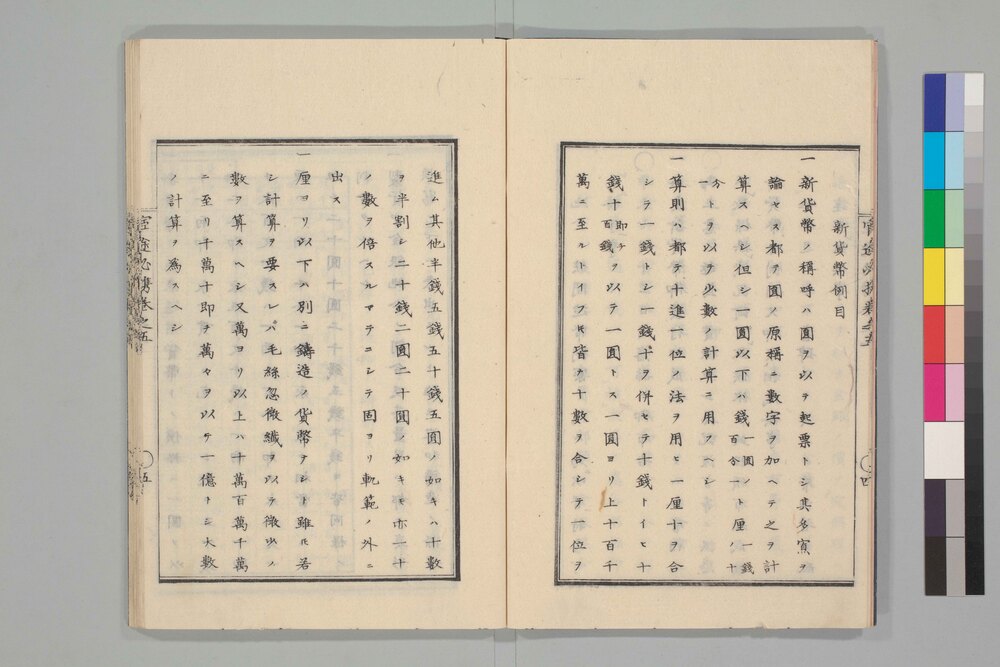 新貨幣例目
一新貨幣ノ稱呼ハ圓ヲ以テ起票トシ其多寡ヲ
論セス都テ圓ノ原稱ニ數字ヲ加ヘテ之ヲ計
算スヘシ但シ一圓以下ハ錢一圓ノ百分一ト厘一錢ノ十
分一トヲ以テ少數ノ計算ニ用フヘシ
一算則ハ都テ十進一位ノ法ヲ用ヒ一厘十ヲ合
シテ一錢トシ一錢十ヲ併セテ十錢トイヒ十
錢十即チ百錢ヲ以テ一圓トス一圓ヨリ上十百千
萬ニ至ルトイフㇳモ皆ナ十數ヲ合シテ前位ヲ
官途必携卷之五
○四
進ム其他半錢五錢五十錢五圓ノ如キハ十數
ヲ半割シ二十錢二圓二十圓ノ如キモ亦一十
ノ數ヲ倍スルマテニシテ固ヨリ軌範ノ外ニ
出ス
一厘ヨリ以下ハ別ニ鑄造ノ貨幣ナシト雖𪜈若
シ計算ヲ要スレハ毛絲忽微纖ヲ以テ微少ノ
數ヲ算スヘシ又萬ヨリ以上ハ十萬百萬千萬
ニ至リ千萬十即チ萬々ヲ以テ一億トシ大數
ノ計算ヲ爲スヘシ
官途必携卷之五
○五